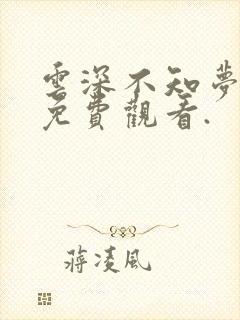 雲深不知夢
免費觀看.
蔣凌風